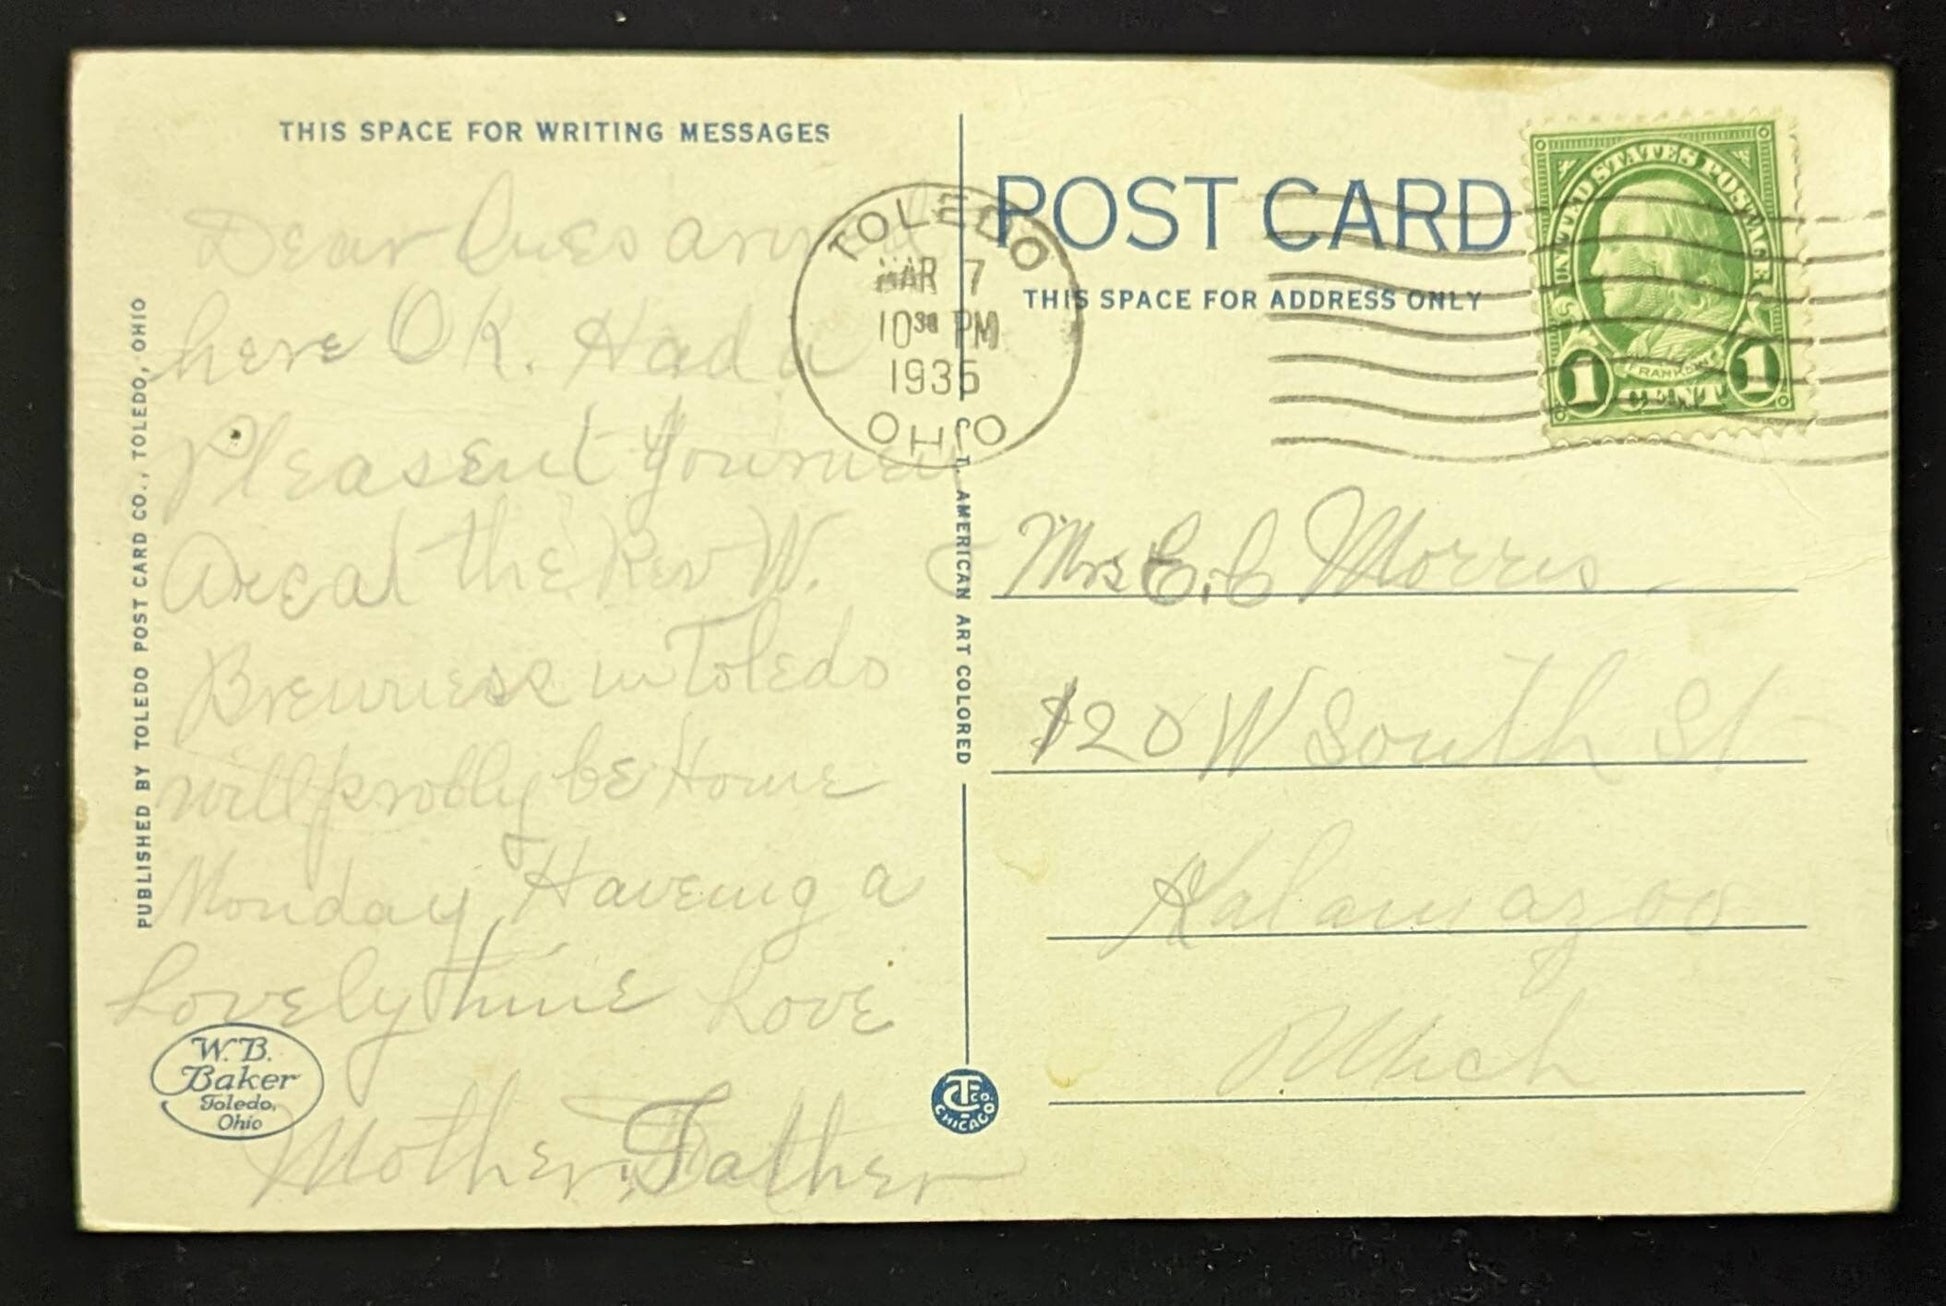 THIS SPACE FOR WRITING MESSAGES
Dear Ones
here OK. Had a
Pleasent Journey
Are at the Rev W. C
in Toledo
will probly be Home
Monday, Haveing a
Lovely time Love
Mother, Father
PUBLISHED BY TOLEDO POST CARD CO., TOLEDO, OHIO
W. B.
Baker
Toledo,
Ohio
C. T. AMERICAN ART COLORED
CT CO.
CHICAGO
TOLEDO
MAR 7
10 30 PM
1935
OHIO
POST CARD
THIS SPACE FOR ADDRESS ONLY
UNITED STATES POSTAGE
FRANKLIN
1 CENT 1
Mrs E. C Morris
120 W South St
Kalamazoo
Mich